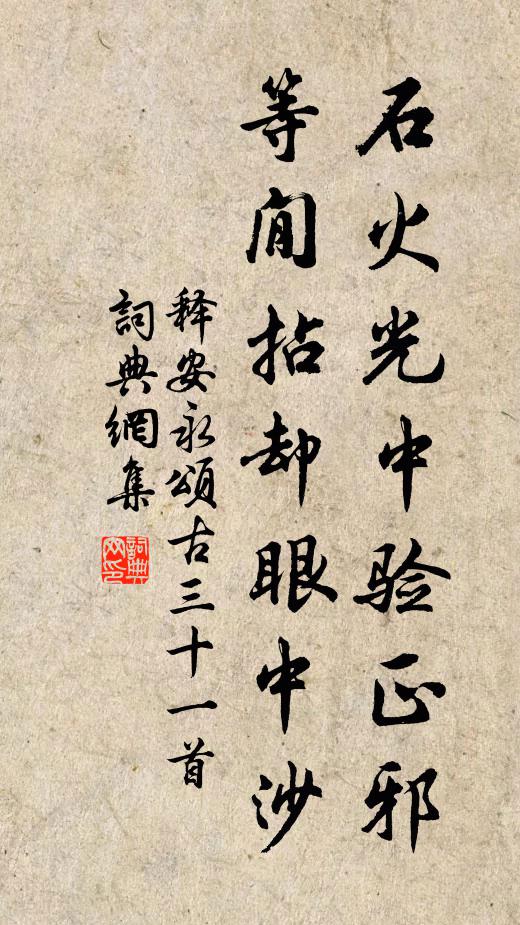 石火光中验正邪
等闲拈却眼中沙
释安永頌古三十一首
詞典網集
詞典网印